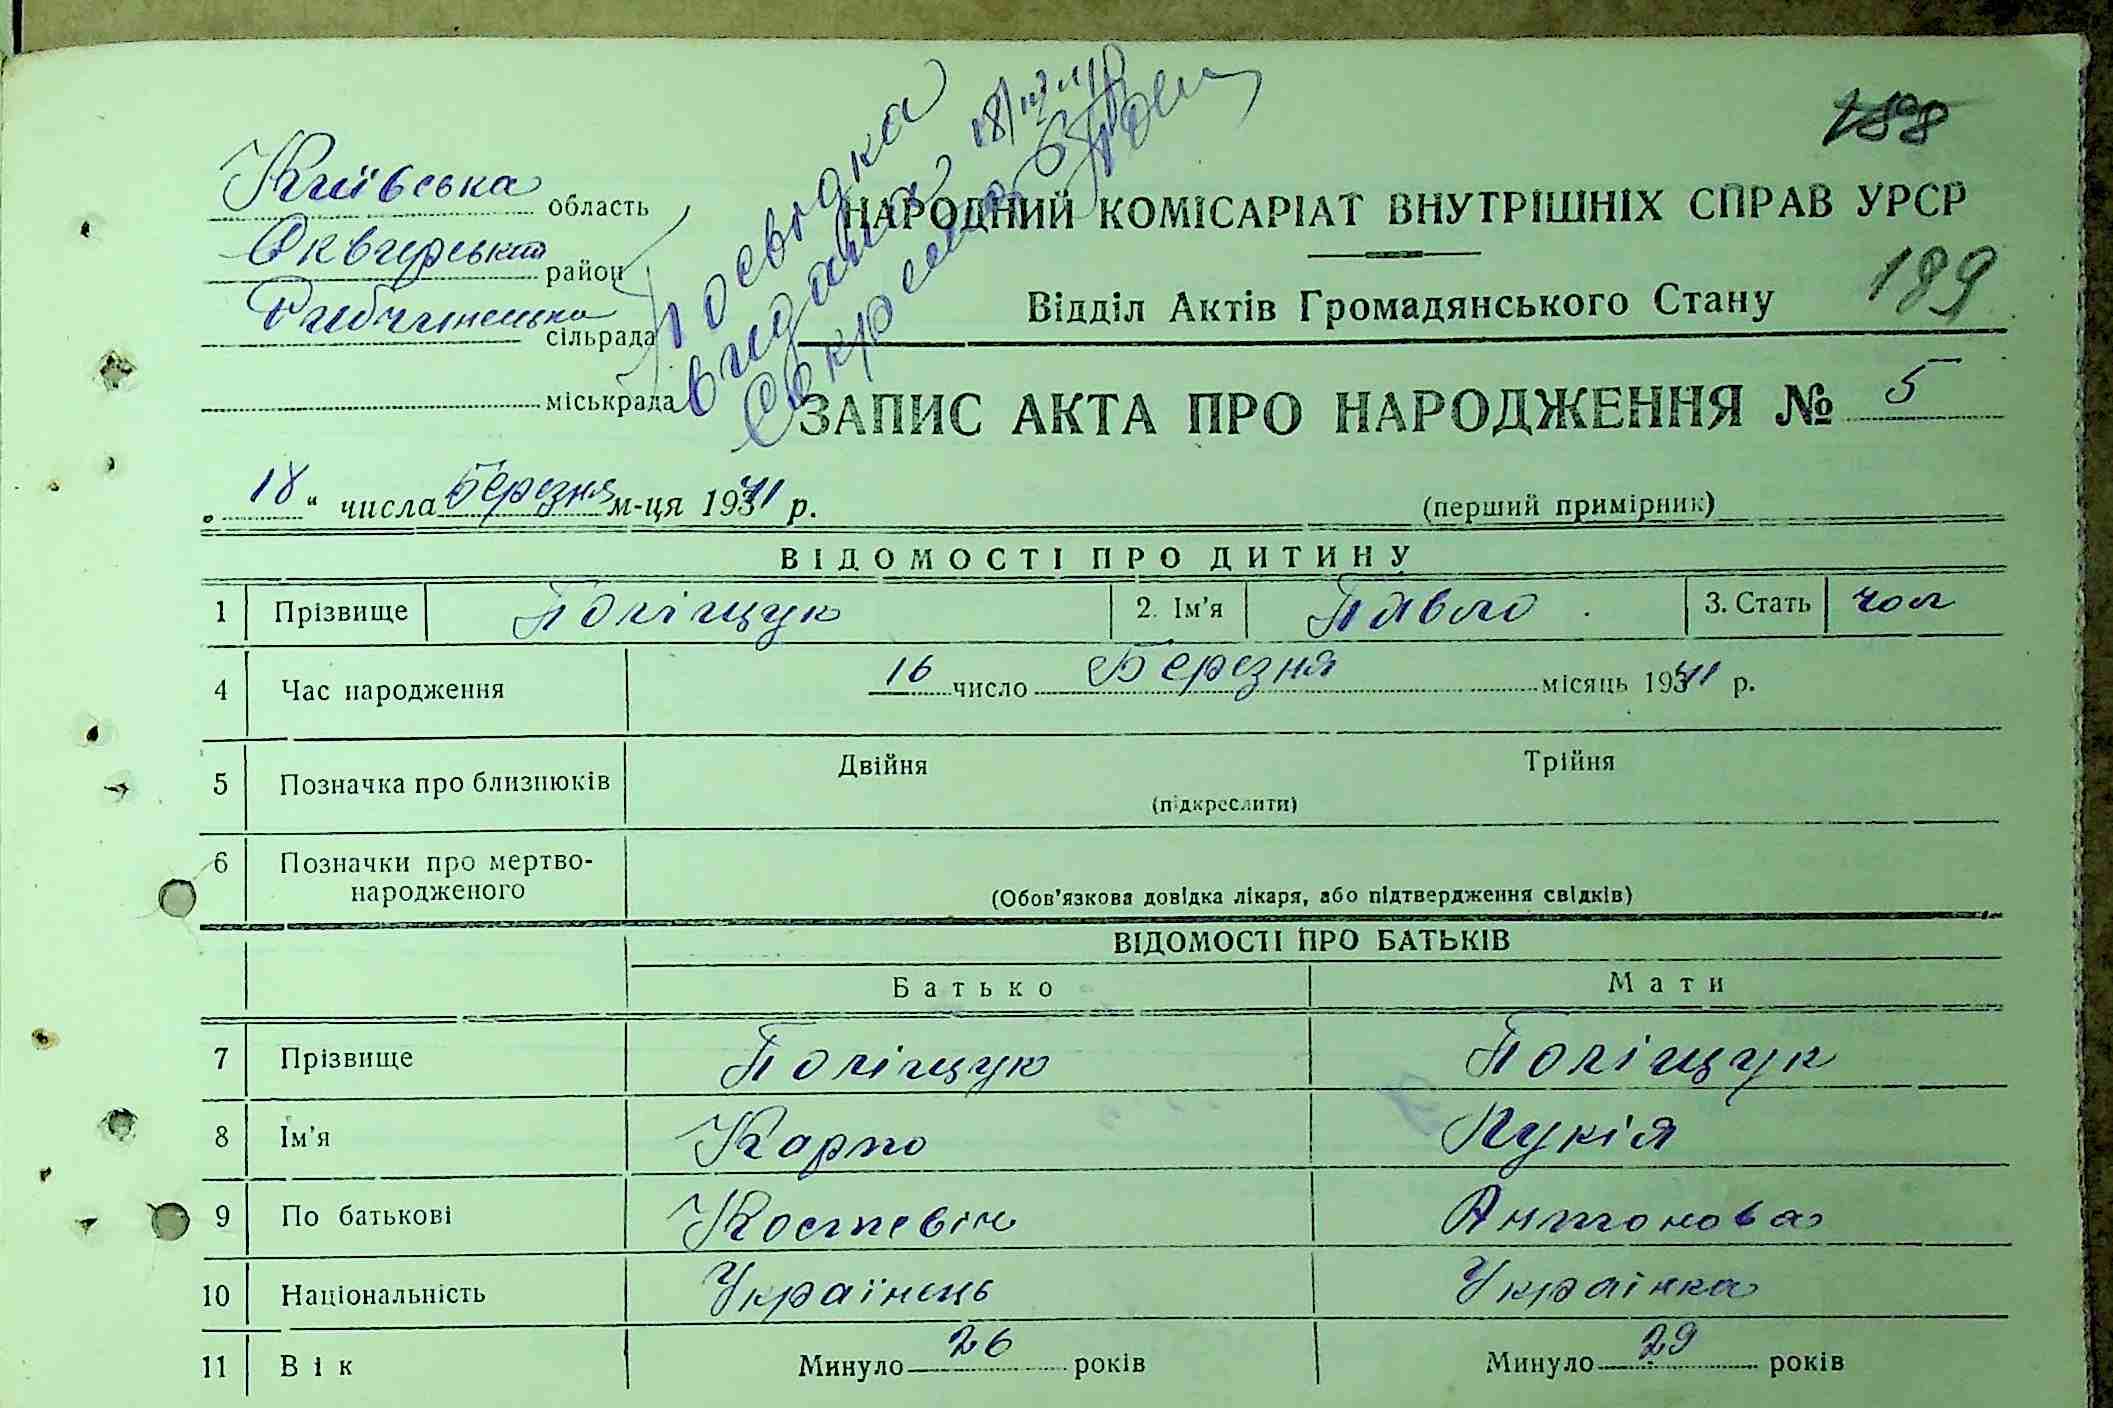 188
Київська область
Сквирський район
сільрада
міськрада
Посвідка
видана
НАРОДНИЙ КОМІСАРІАТ ВНУТРІШНІХ СПРАВ УРСР
189
Відділ Актів Громадянського Стану
ЗАПИС АКТА ПРО НАРОДЖЕННЯ № 5
„18“ числа Березня м-ця 1941 р.
(перший примірник)
ВІДОМОСТІ ПРО ДИТИНУ
1 Прізвище Поліщук 2. Ім’я Павло 3. Стать чол
4 Час народження 16 число Березня місяць 1941 р.
5 Позначка про близнюків Двійня Трійня
(підкреслити)
6 Позначки про мертво-
народженого
(Обов’язкова довідка лікаря, або підтвердження свідків)
ВІДОМОСТІ ПРО БАТЬКІВ
Батько Мати
7 Прізвище Поліщук Поліщук
8 Ім’я Карпо Лукія
9 По батькові Костевіч Антонова
10 Національність Українець Українка
11 Вік Минуло 26 років Минуло 29 років